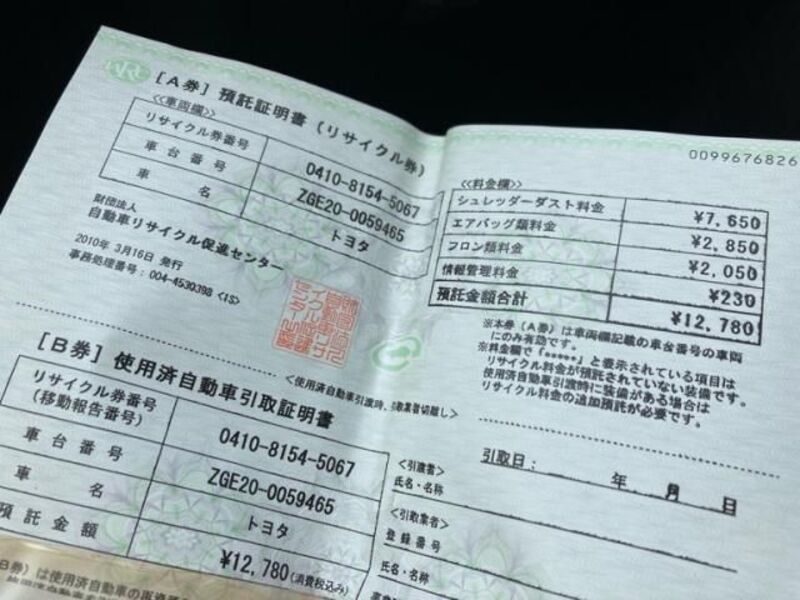 ARC
[A券] 預託証明書 (リサイクル券)
0099676826
<<車両欄>>
リサイクル券番号 0410-8154-5067
車台番号 ZGE20-0059465
車名 トヨタ
財団法人
自動車リサイクル促進センター
2010年 3月16日 発行
事務処理番号:004-4530398 <1S>
<<料金欄>>
シュレッダーダスト料金 ¥7,650
エアバッグ類料金 ¥2,850
フロン類料金 ¥2,050
情報管理料金 ¥230
預託金額合計 ¥12,780
※本券(A券)は車両欄記載の車台番号の車両
にのみ有効です。
※料金欄で「*****」と表示されている項目は
リサイクル料金が預託されていない装備です。
使用済自動車引渡時に装備がある場合は
リサイクル料金の追加預託が必要です。
[B券] 使用済自動車引取証明書
<使用済自動車引渡時、引取業者切離し>
リサイクル券番号
(移動報告番号) 0410-8154-5067
車台番号 ZGE20-0059465
車名 トヨタ
預託金額 ¥12,780(消費税込み)
引取日: 年 月 日
<引渡者>
氏名・名称
<引取業者>
登録番号
氏名・名称
B券)は使用済自動車の再資